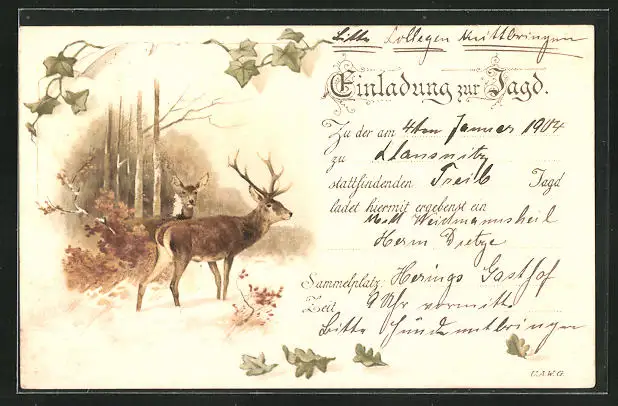 Bitte Collegen mittbringen
Einladung zur Jagd.
Zu der am 4ten Januar 1904
zu
stattfindenden Treib Jagd
ladet hiermit ergebenst ein
Mit Weidmannsheil
Herm. Dietze
Sammelplatz: Herings Gasthof
Zeit 9 Uhr vormitt.
Bitte Hunde mitbringen
U.A.W.G.